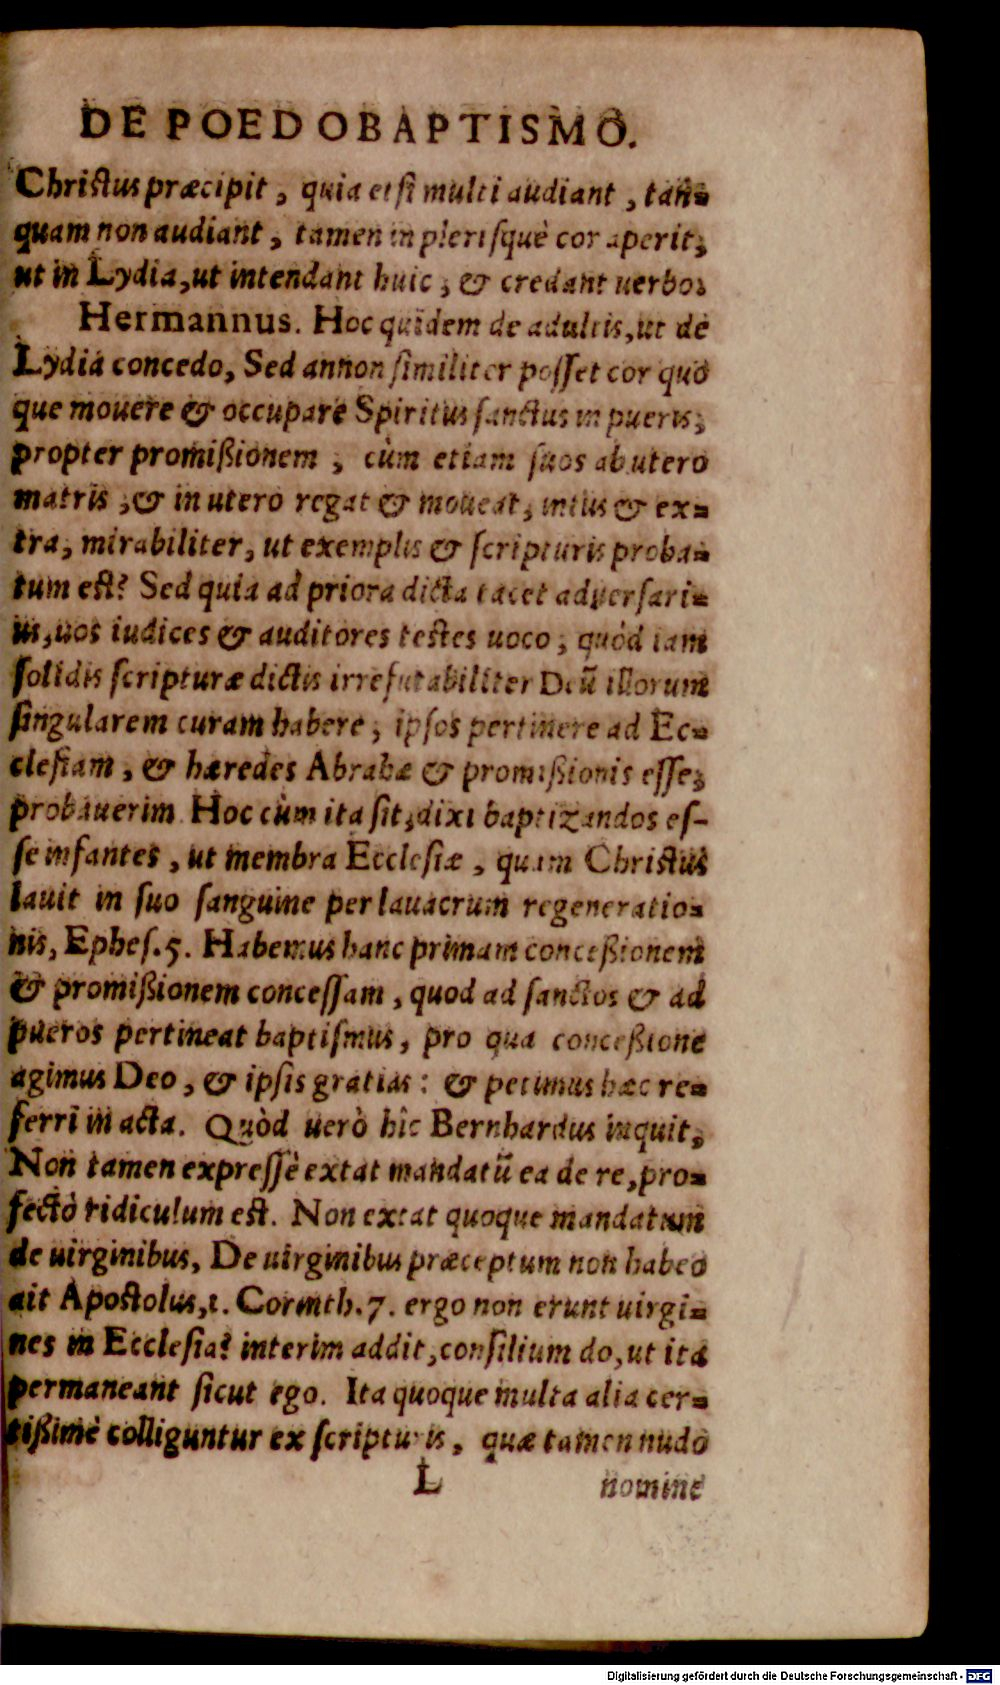 DE POEDOBAPTISMO.
Christus præcipit, quia etsi multi audiant, tan=
quam non audiant, tamen in plerisquè cor aperit,
ut in Lydia, ut intendant huic, & credant uerbo.
Hermannus. Hoc quidem de adultis, ut de
Lydia concedo, Sed annon similiter posset cor quo
que mouere & occupare Spiritus sanctus in pueris,
propter promißionem, cùm etiam suos ab utero
matris, & in utero regat & moueat, intus & ex=
tra, mirabiliter, ut exemplis & scripturis proba=
tum est? Sed quia ad priora dicta tacet aduersari=
us, uos iudices & auditores testes uoco, quòd iam
solidis scripturæ dictis irrefutabiliter Deũ illorum
singularem curam habere, ipsos pertinere ad Ec=
clesiam, & hæredes Abrahæ & promißionis esse,
probauerim. Hoc cùm ita sit, dixi baptizandos es-
se infantes, ut membra Ecclesiæ, quam Christus
lauit in suo sanguine per lauacrum regeneratio=
nis, Ephes. 5. Habemus hanc primam conceßionem
& promißionem concessam, quod ad sanctos & ad
pueros pertineat baptismus, pro qua conceßione
agimus Deo, & ipsis gratias: & petimus hæc re=
ferri in acta. Quòd uerò hîc Bernhardus inquit,
Non tamen expressè extat mandatũ ea de re, pro=
fectò ridiculum est. Non extat quoque mandatum
de uirginibus, De uirginibus præceptum non habeo
ait Apostolus, 1. Corinth. 7. ergo non erunt uirgi=
nes in Ecclesia? interim addit, consilium do, ut ita
permaneant sicut ego. Ita quoque multa alia cer=
tißimè colliguntur ex scripturis, quæ tamen nudo
L nomine
Digitalisierung gefördert durch die Deutsche Forschungsgemeinschaft - DFG